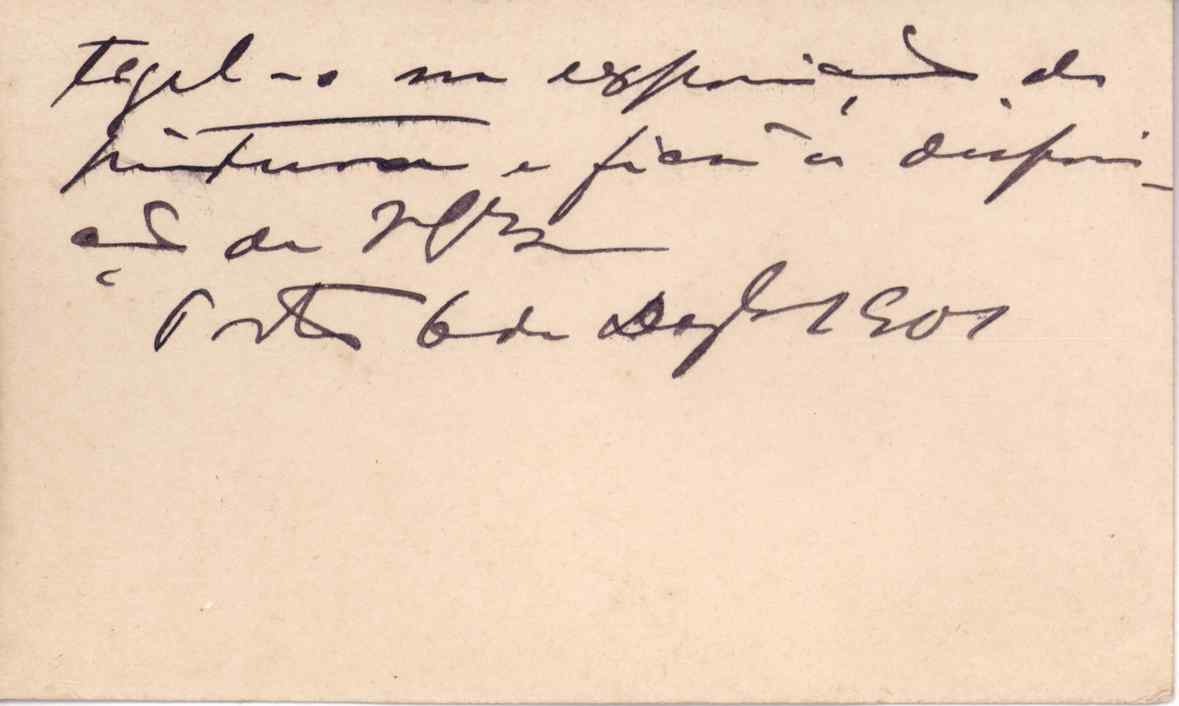 tegel-o na exposição de
pintura e fica á disposi-
ção de V. Ex.ª
Porto 6 de Dezbr 1901